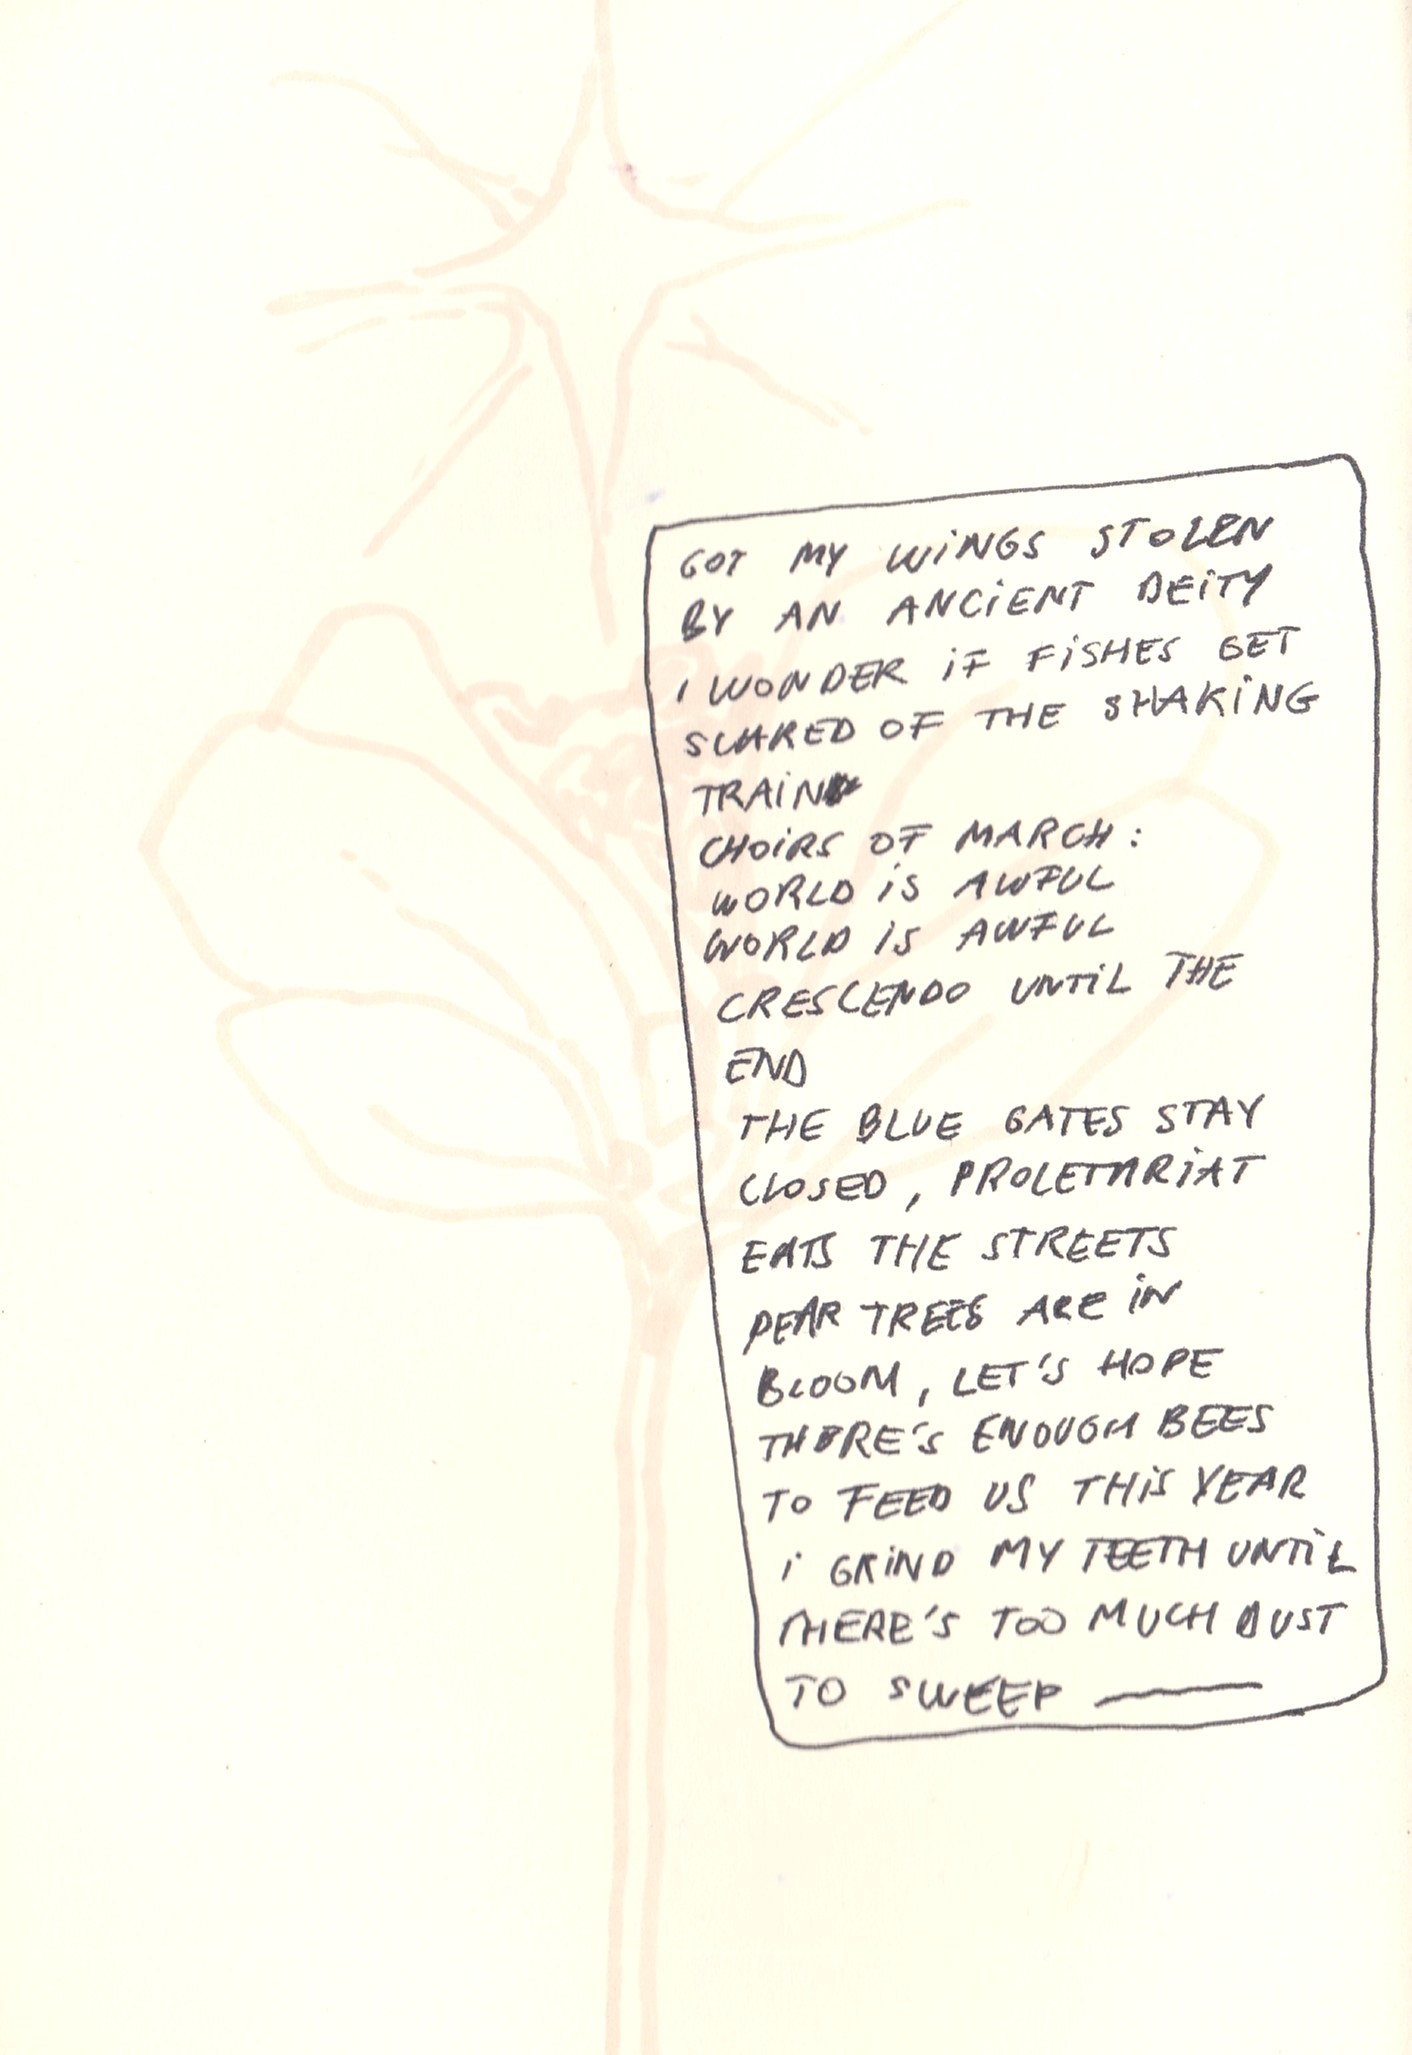 GOT MY WiNGS STOLEN
BY AN ANCiENT DEiTY
I WONDER iF FiSHES GET
SCARED OF THE SHAKiNG
TRAiN
CHOiRS OF MARCH:
WORLD iS AWFUL
WORLD iS AWFUL
CRESCENDO UNTiL THE
END
THE BLUE GATES STAY
CLOSED, PROLETARiAT
EATS THE STREETS
PEAR TREES ARE iN
BLOOM, LET'S HOPE
THERE'S ENOUGH BEES
TO FEED US THiS YEAR
i GRiND MY TEETH UNTiL
THERE'S TOO MUCH DUST
TO SWEEP —